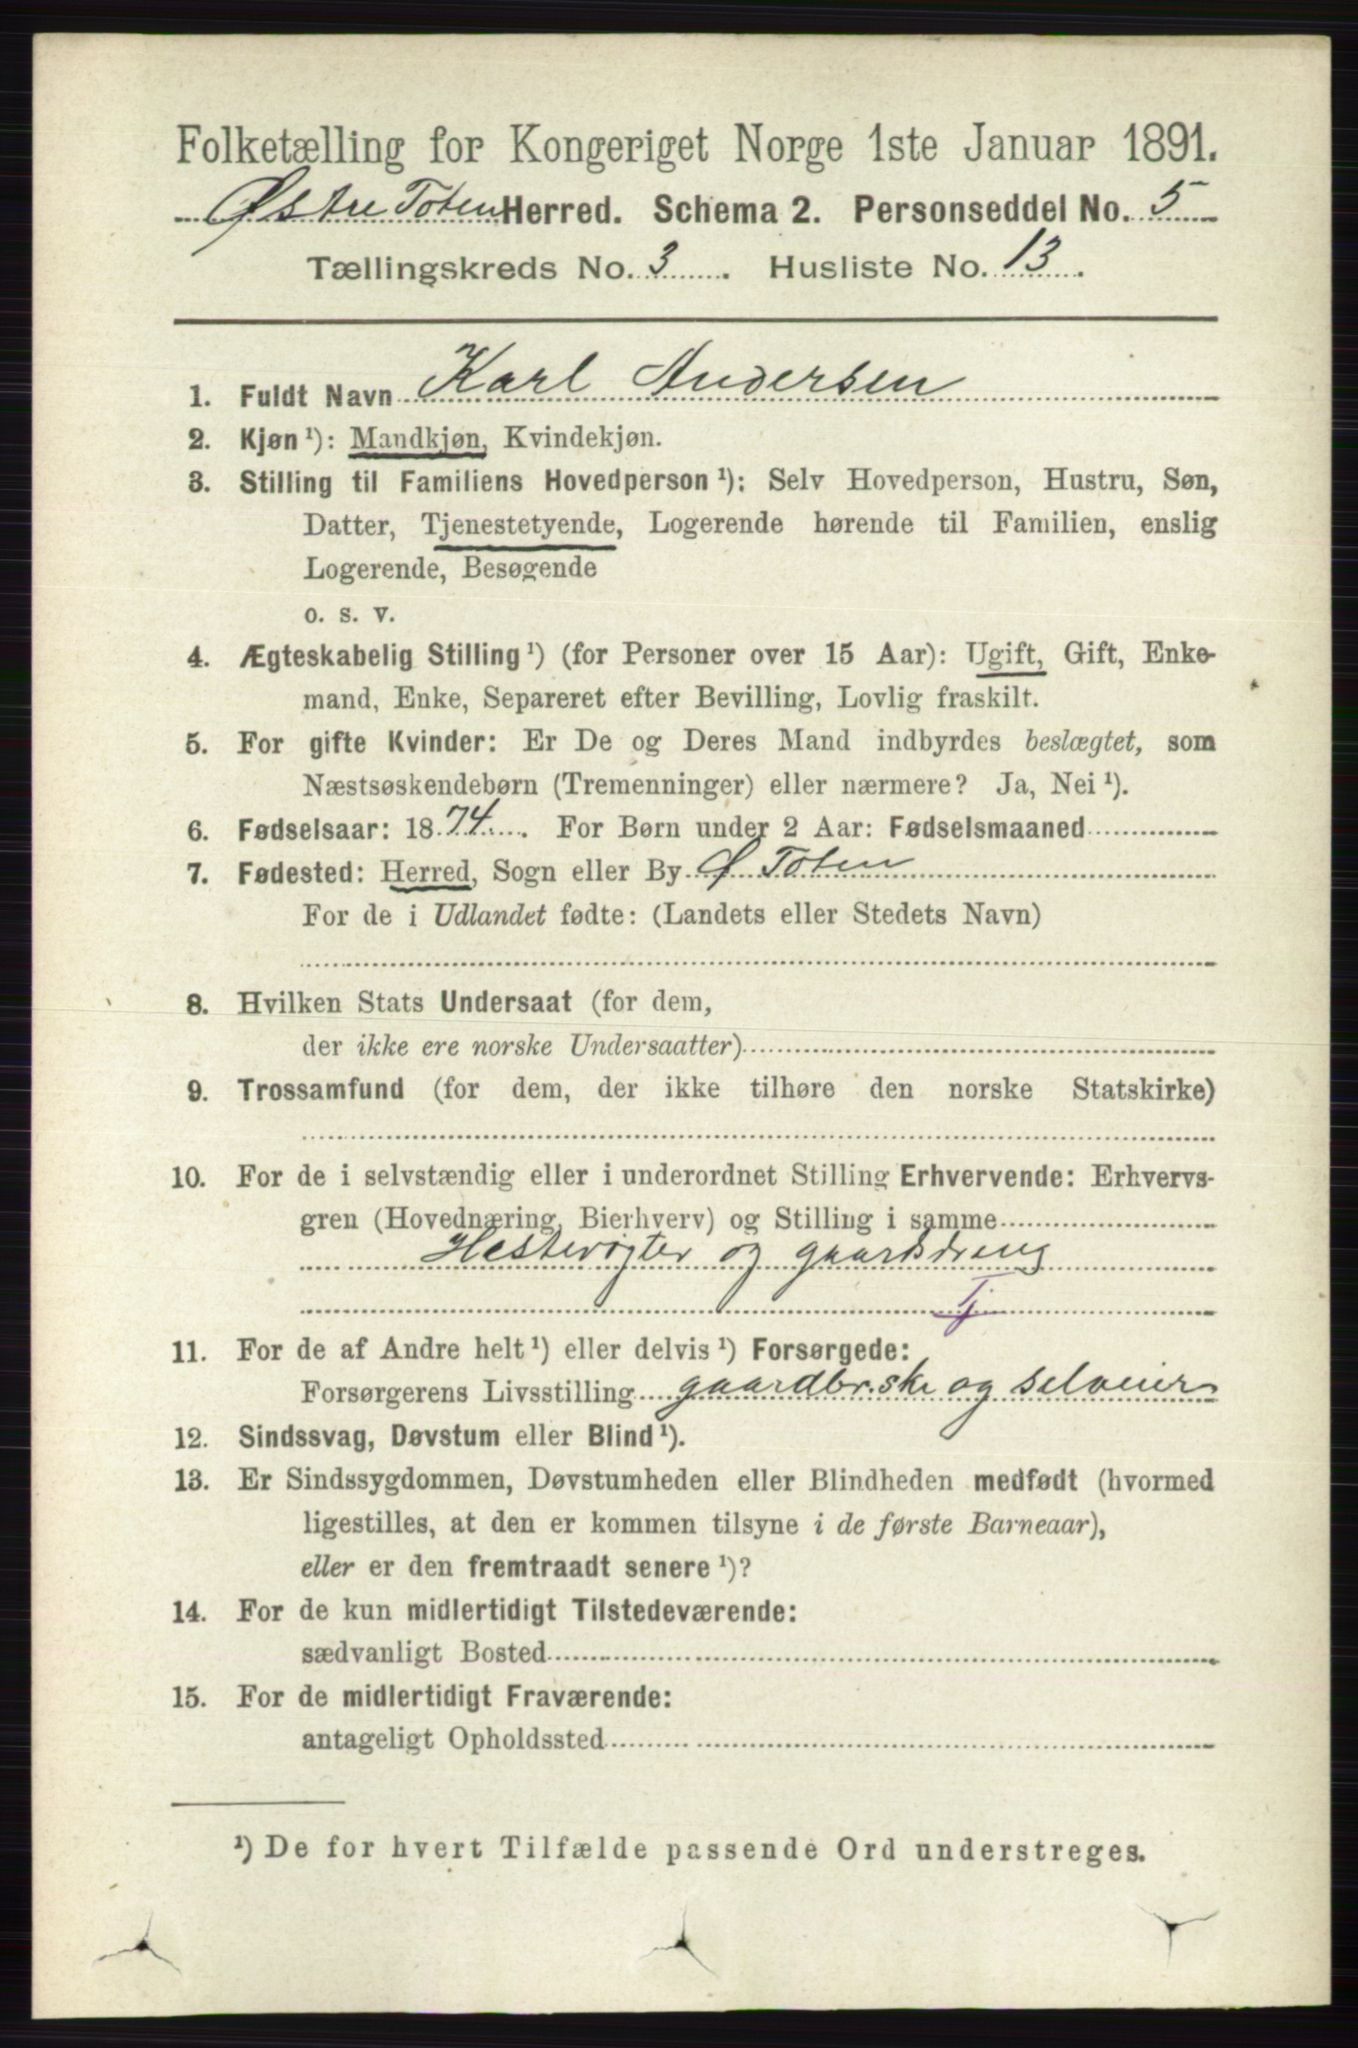 Folketælling for Kongeriget Norge 1ste Januar 1891.
Østre Toten Herred. Schema 2. Personseddel No. 5
Tællingskreds No. 3. Husliste No. 13.
1. Fuldt Navn Karl Andersen
2. Kjøn ¹): Mandkjøn, Kvindekjøn.
3. Stilling til Familiens Hovedperson ¹): Selv Hovedperson, Hustru, Søn,
Datter, Tjenestetyende, Logerende hørende til Familien, enslig
Logerende, Besøgende
o. s. v.
4. Ægteskabelig Stilling ¹) (for Personer over 15 Aar): Ugift, Gift, Enke-
mand, Enke, Separeret efter Bevilling, Lovlig fraskilt.
5. For gifte Kvinder: Er De og Deres Mand indbyrdes beslægtet, som
Næstsøskendebørn (Tremenninger) eller nærmere? Ja, Nei ¹).
6. Fødselsaar: 1874. For Børn under 2 Aar: Fødselsmaaned
7. Fødested: Herred, Sogn eller By Ø Toten
For de i Udlandet fødte: (Landets eller Stedets Navn)
8. Hvilken Stats Undersaat (for dem,
der ikke ere norske Undersaatter)
9. Trossamfund (for dem, der ikke tilhøre den norske Statskirke)
10. For de i selvstændig eller i underordnet Stilling Erhvervende: Erhvervs-
gren (Hovednæring, Bierhverv) og Stilling i samme
Hesterøgter og gaardsdreng
Tj
11. For de af Andre helt ¹) eller delvis ¹) Forsørgede:
Forsørgerens Livsstilling gaardbr.ske og selveier
12. Sindssvag, Døvstum eller Blind ¹).
13. Er Sindssygdommen, Døvstumheden eller Blindheden medfødt (hvormed
ligestilles, at den er kommen tilsyne i de første Barneaar),
eller er den fremtraadt senere ¹)?
14. For de kun midlertidigt Tilstedeværende:
sædvanligt Bosted
15. For de midlertidigt Fraværende:
antageligt Opholdssted
¹) De for hvert Tilfælde passende Ord understreges.